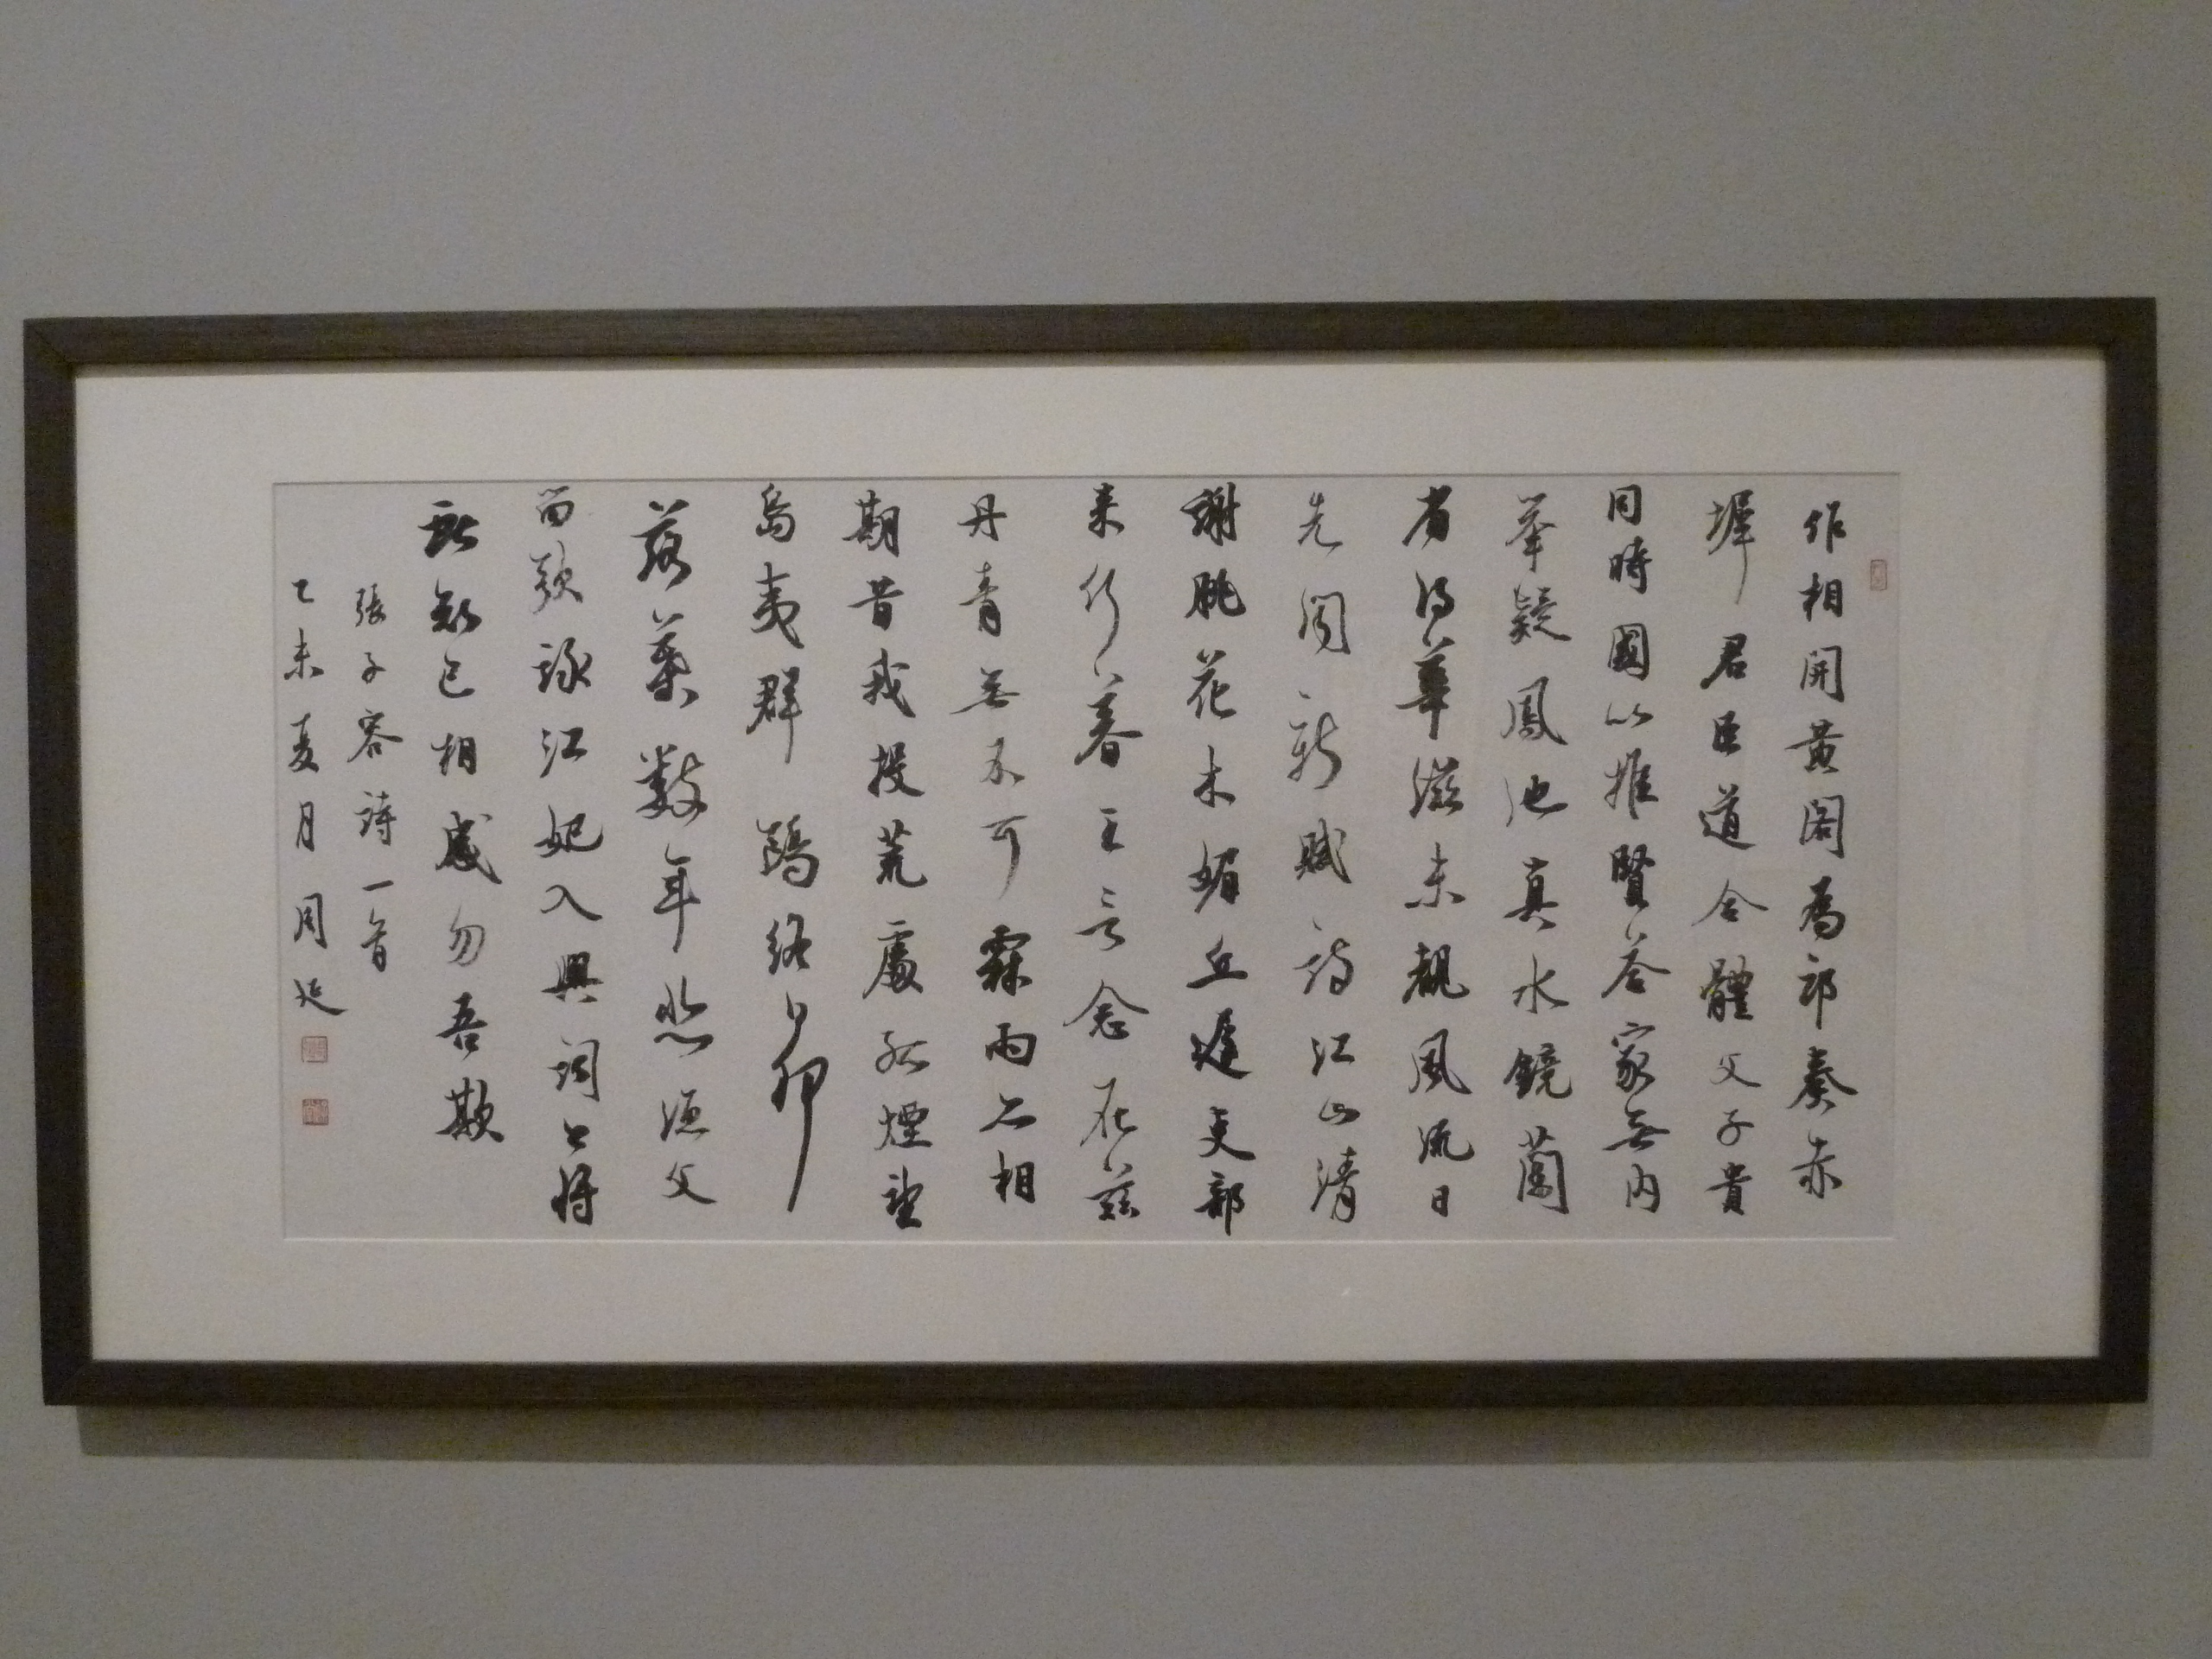 作相開黃閣為郎奏赤
墀君臣道合體父子貴
同時國以推賢答家無內
舉疑鳳池真水鏡蘭
省得華滋未覩風流日
先聞新賦詩江山清
謝朓花木媚丘遲吏部
来何暮王言念在茲
丹青無不可霖雨亦相
期昔我投荒處孤煙望
島夷群鷗終日狎
落葉數年悲漁父
留歌詠江妃入興詞今將
献知己相感勿吾欺
張子容詩一首
乙未夏月周延